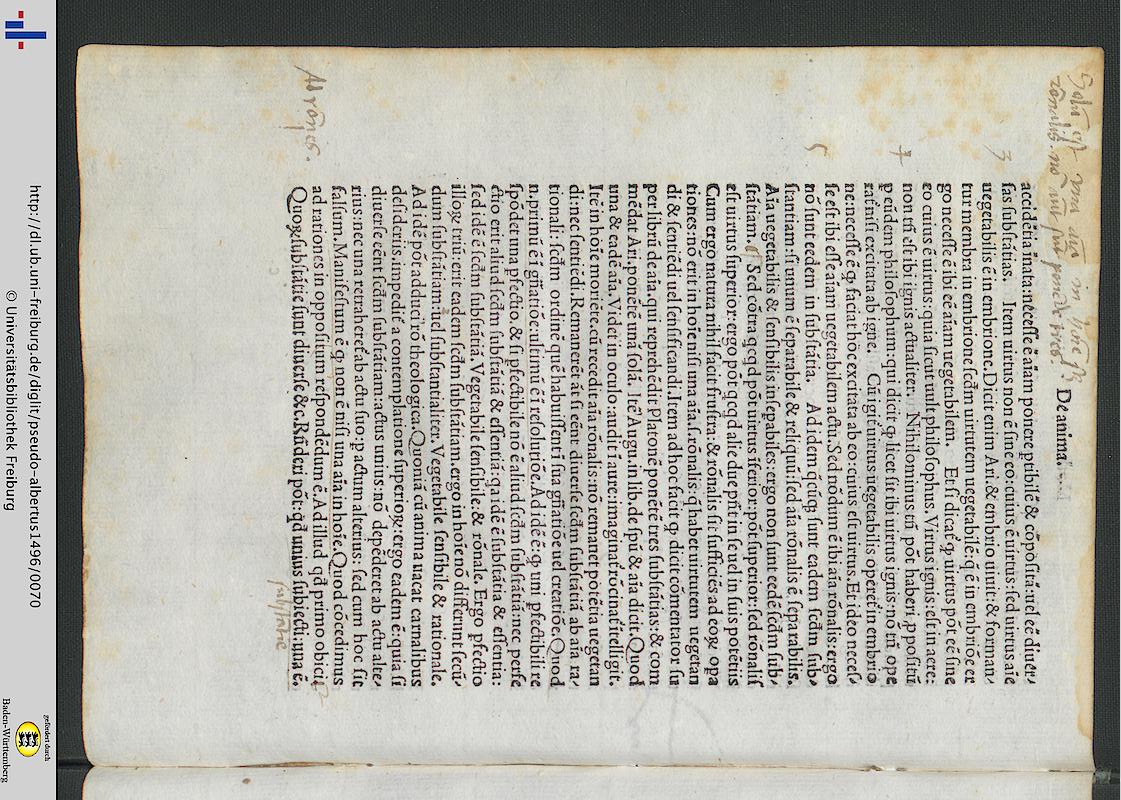 De anima.
accidētia īnata: necesse ē aīam ponere ptibilē & cōpositā: uel eē diuer⸗
sas substātias. Item uirtus non ē sine eo: cuius ē uirtus: sed uirtus aīe
uegetabilis ē in embrione. Dicit enim Ari. & embrio uiuit: & forman⸗
tur membra in embrione scdm uirtutem uegetabilē: q̄ ē in embriōe er
go necesse ē ibi eē aīam uegetabilem. Et si dicat̄ ꝙ uirtus pōt eē sine
eo cuius ē uirtus: quia sicut uult philosophus. Virtus ignis: est in aere:
non tn̄ est ibi ignis actualiter. Nihilominus tn̄ pōt haberi ppositū
p eūdem philosophum: qui dicit ꝙ licet sit ibi uirtus ignis: nō tn̄ ope
rat̄ nisi excitata ab igne. Cū igit̄ uirtus uegetabilis operet̄ in embrio
ne: necesse ē ꝙ faciat hoc excitata ab eo: cuius est uirtus. Et ideo necess
se est ibi esse aīam uegetabilem actu. Sed nōdum ē ibi aīa rōnalis: ergo
nō sunt eedem in substātia. Ad idem q̄cūq̄ sunt eadem scdm sub⸗
stantiam: si unum ē separabile & reliqui: sed aīa rōnalis ē separabilis.
Aīa uegetabilis & sensibilis inseparabiles: ergo non sunt eedē scdm sub⸗
stātiam. Sed cōtra q̄cqd pōt uirtus īferior: pōt superior: sed rōnalis
est uirtus superior: ergo pōt q̄cqd alie due pn̄t in se uel in suis potētiis
Cum ergo natura nihil facit frustra: & rōnalis sit sufficiēs ad eoꝝ opa
tiones: nō erit in hoīe nisi una aīa. s. rōnalis: q̄ habet uirtutem uegetan
di & sentiēdi uel sensificandi. Item ad hoc facit ꝙ dicit cōmentator su
per librū de aīa. qui reprehēdit Platonē ponētē tres substātias: & com
mēdat Ari. ponētē unā solā. Itē Augu. in lib. de spū & aīa dicit. Quod
una & eadē aīa. Videt in oculo: audit ī aure: imaginat̄ rōcinat̄ ītelligit.
Itē in hoīe moriēte. cū recedit aīa rōnalis: nō remanet potētia uegetan
di: nec sentiēdi. Remaneret āt si eēnt diuerse scdm substātiā ab aīa ra⸗
tionali: scdm ordinē quē habuissent ī sua gn̄atiōe uel creatiōe. Quod
n. primū ē ī gn̄atiōe: ultimū ē ī resolutiōe. Ad idē ē: ꝙ uni pfectibili re
spōdet una pfectio. & si pfectibile nō ē aliud scdm substātiā: nec perfe
ctio erit aliud scdm substātiā & essentiā: q̄a idē ē substātia & essentia:
sed idē ē scdm substātiā. Vegetabile sensibile. & rōnale. Ergo pfectio
illoꝝ triū: erit eadem scdm substātiam. ergo in hoīe nō differunt secū⸗
dum substātiam: uel substantialiter. Vegetabile sensibile & rationale.
Ad idē pōt adduci rō theologica. Quoniā cū anima uacat carnalibus
desideriis. impedit̄ a contemplatione superioꝝ: ergo eadem ē: quia si
diuerse eēnt scdm substātiam: actus unius: nō depēderet ab actu alte⸗
rius: nec una retraheret̄ ab actu suo: p actum alterius: sed cum hoc sit
falsum. Manifestum ē ꝙ non ē nisi una aīa in hoīe. Quod cōcedimus
ad rationes in oppositum respōdēdum ē. Ad illud qd primo obicit̄
Quoꝝ substātie sunt diuerse &c. Rn̄deri pōt: qd unius subiecti: una ē.
3
4
5
Ad rōnes.
substātie
http://dl.ub.uni-freiburg.de/diglit/pseudo-albertus1496/0070
© Universitätsbibliothek Freiburg
gefördert durch
Baden-Württemberg